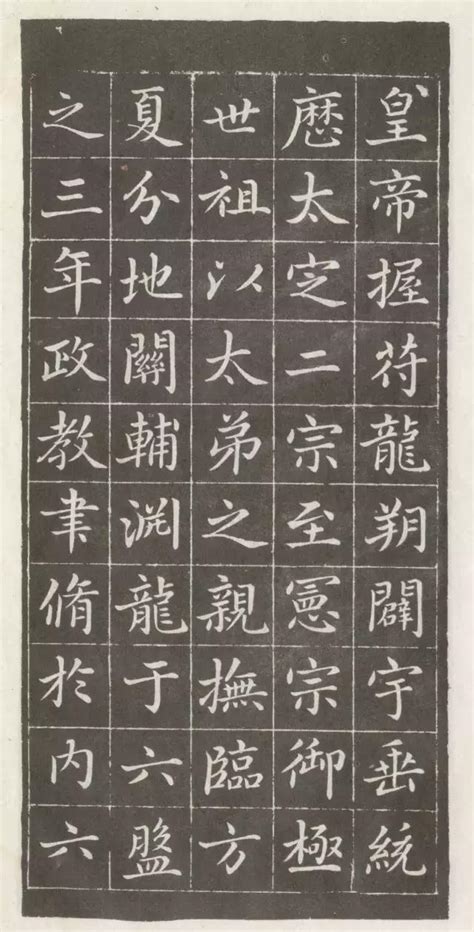 皇帝握苻龍朔闢宇垂統
曆太㝎二宗至憲宗御極
世祖以太弟之親撫臨方
夏分地關輔渊龍于六盤
之三年政教聿脩於内六